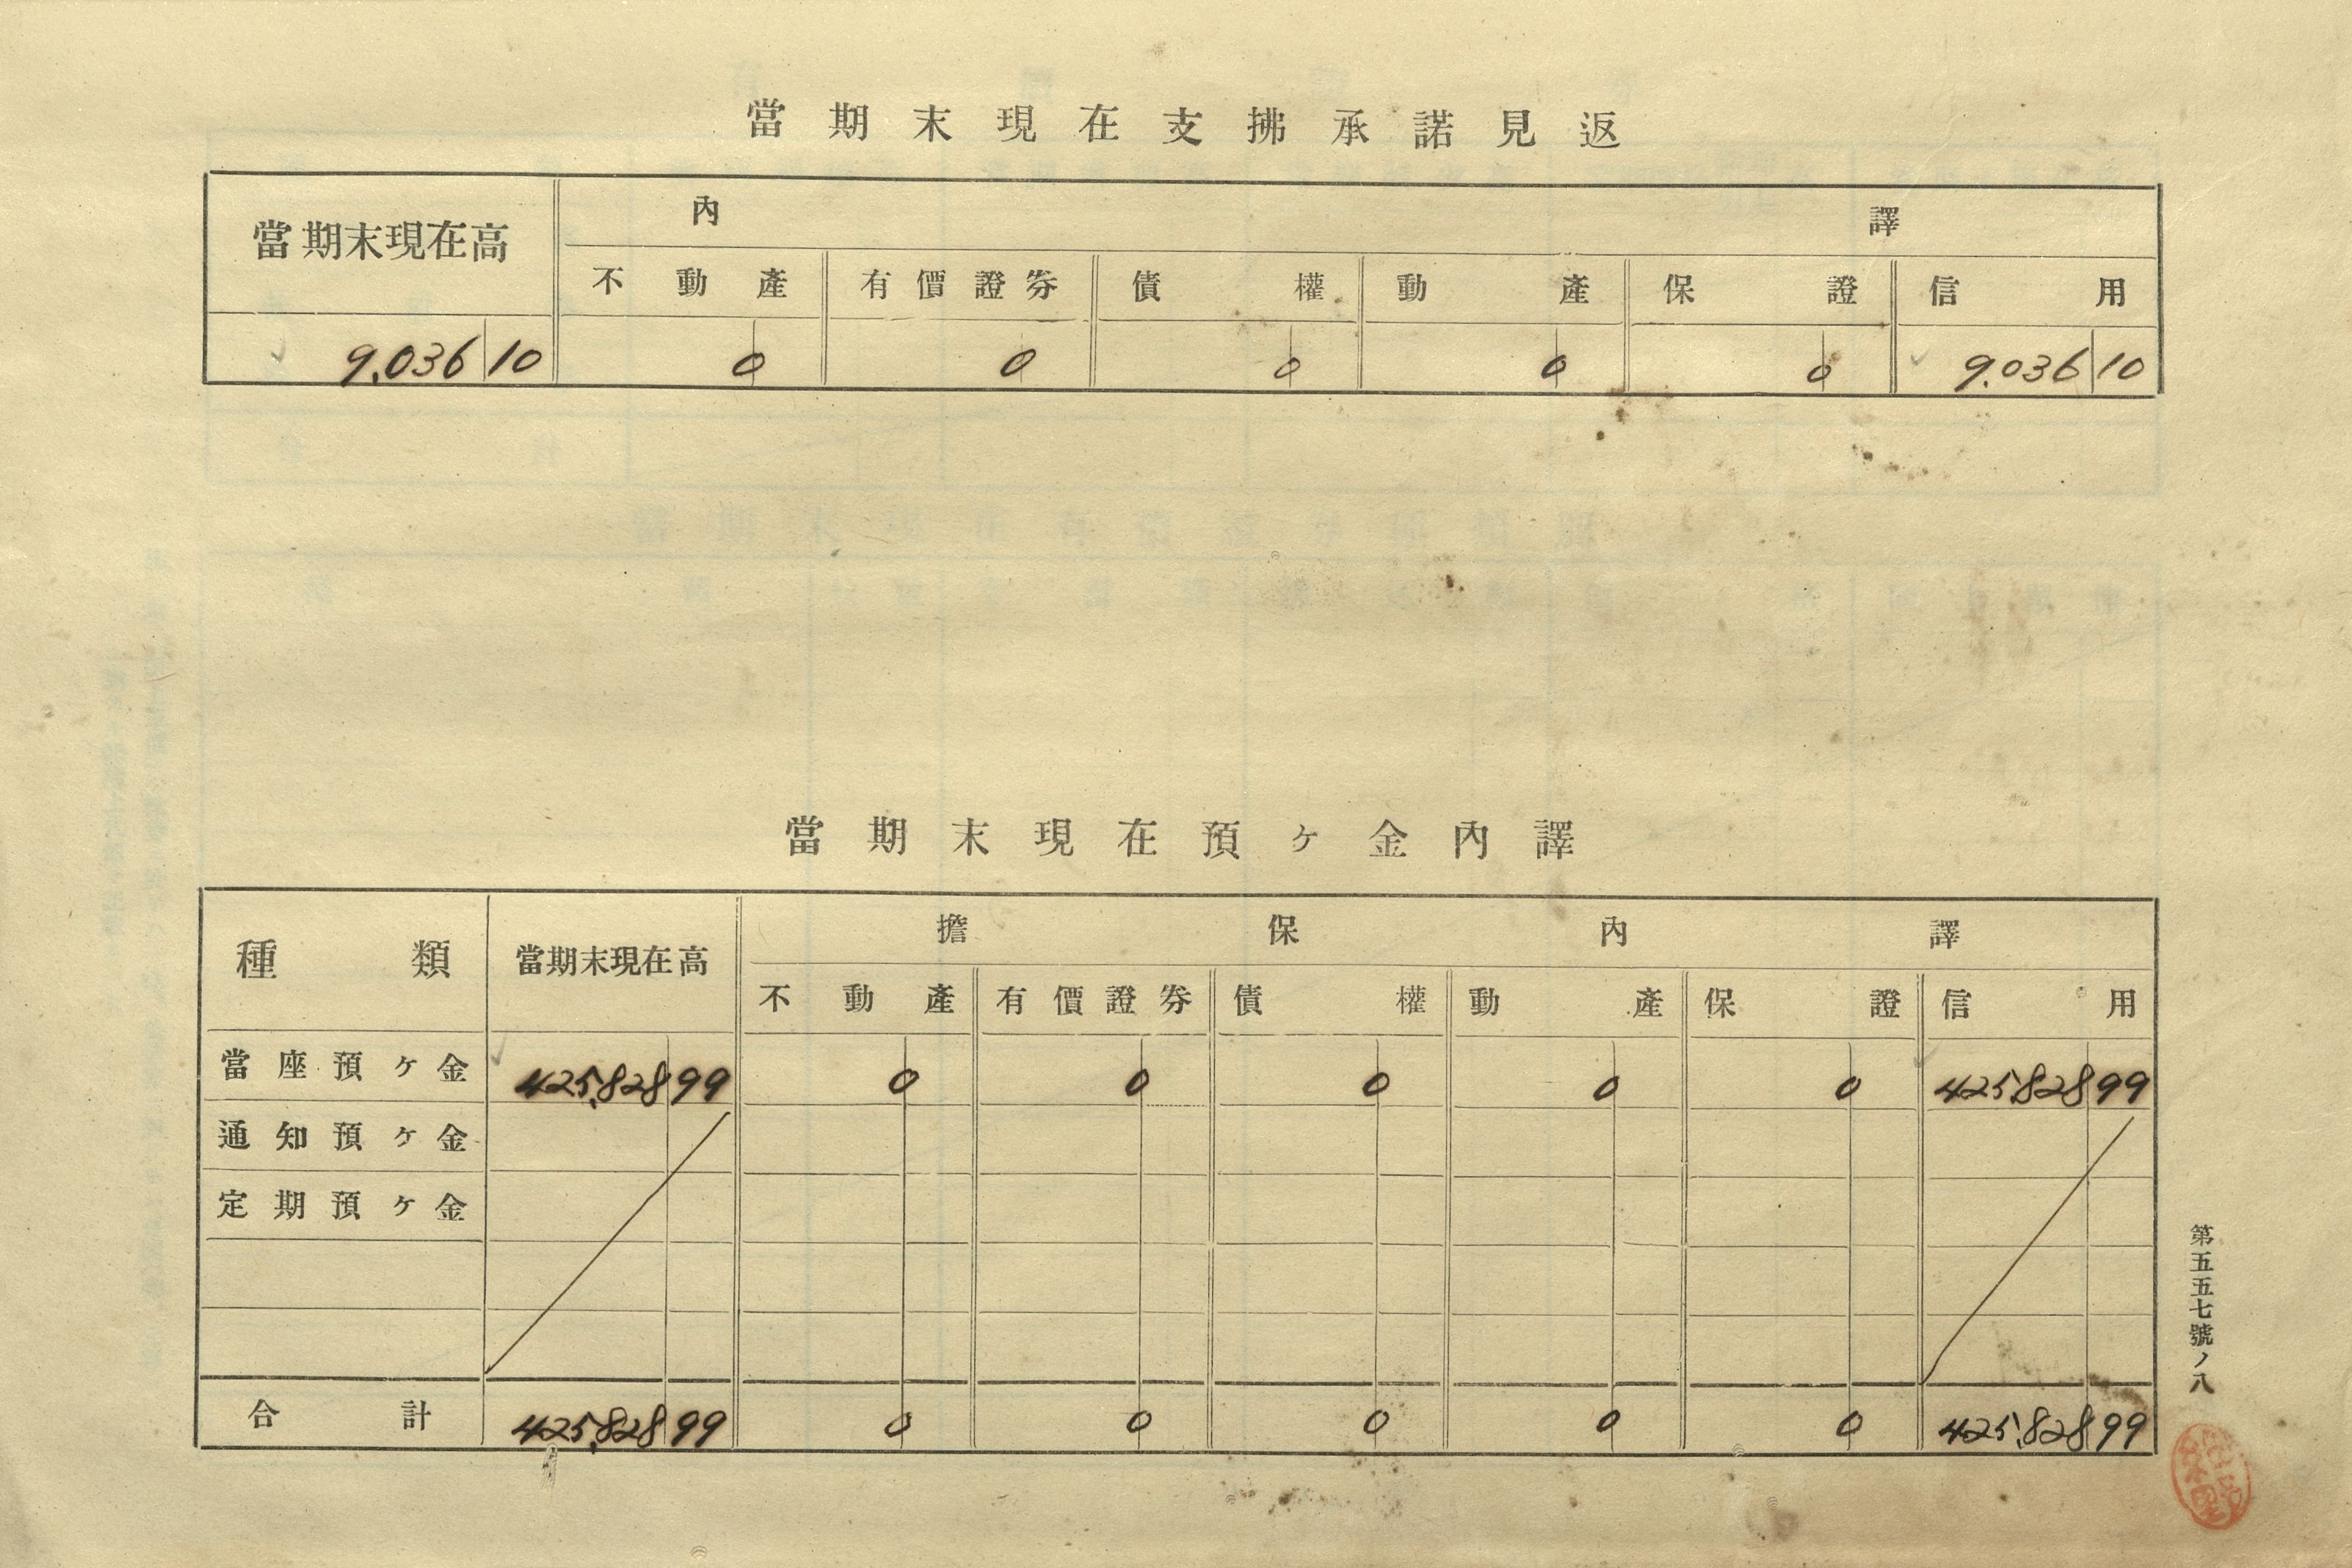 當期末現在支拂承諾見返
當期末現在高 內譯
不動產 有價證券 債權 動產 保證 信用
9,036 10 0 0 0 0 0 9,036 10
當期末現在預ヶ金內譯
種類 當期末現在高 擔保內譯
不動產 有價證券 債權 動產 保證 信用
當座預ヶ金 425,828 99 0 0 0 0 0 425,828 99
通知預ヶ金
定期預ヶ金
合計 425,828 99 0 0 0 0 0 425,828 99
第五五七號ノ八